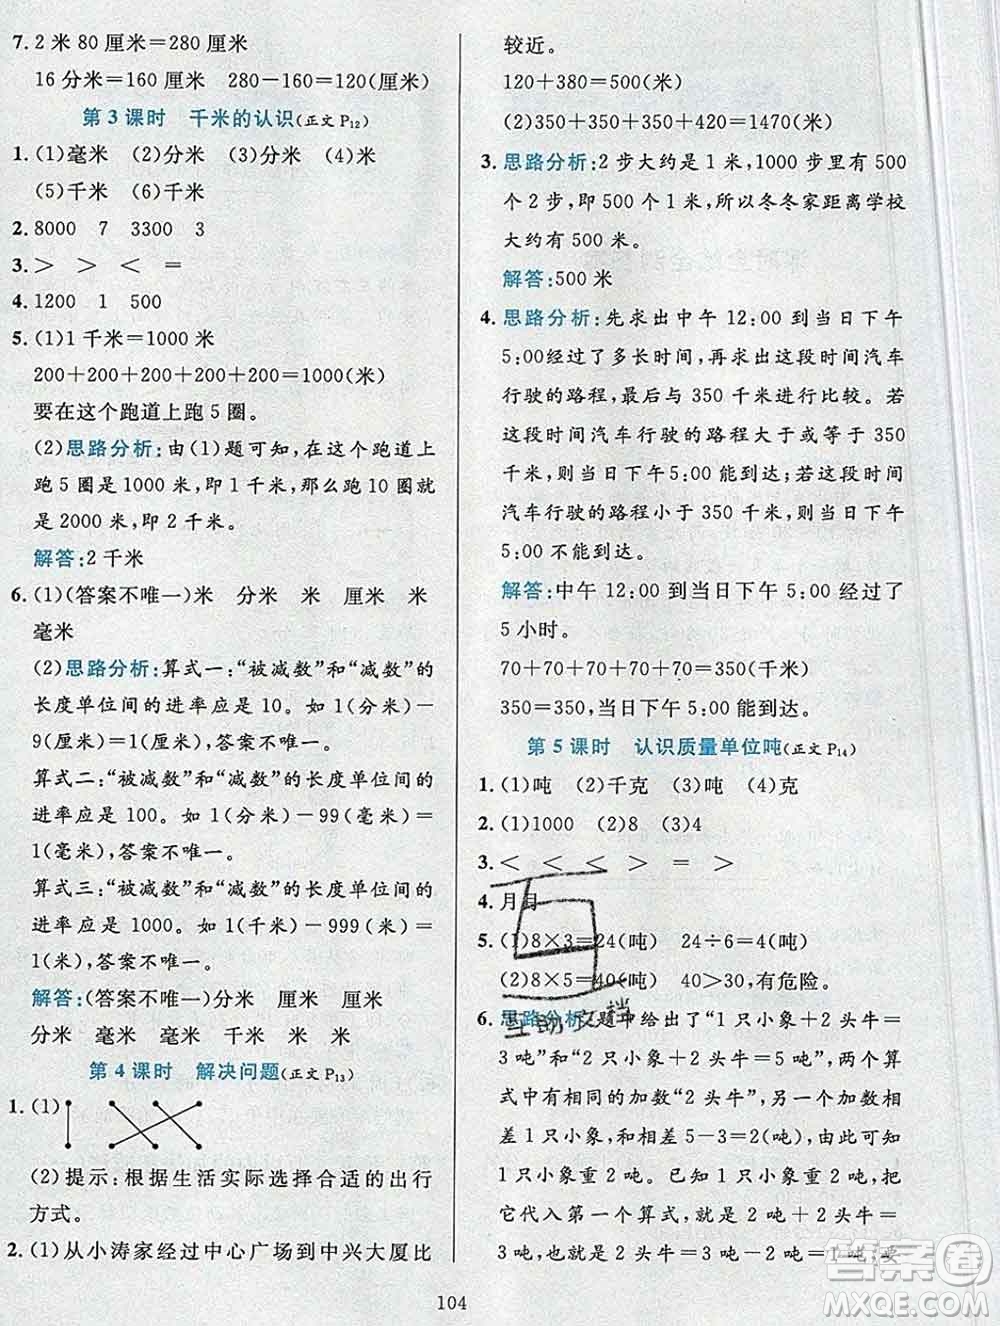 7. 2米80厘米=280厘米
16分米=160厘米 280-160=120(厘米)
第3课时 千米的认识(正文P12)
1. (1)毫米 (2)分米 (3)分米 (4)米
(5)千米 (6)千米
2. 8000 7 3300 3
3. > > < =
4. 1200 1 500
5. (1)1千米=1000米
200+200+200+200+200=1000(米)
要在这个跑道上跑5圈。
(2)思路分析:由(1)题可知,在这个跑道上
跑5圈是1000米,即1千米,那么跑10圈就
是2000米,即2千米。
解答:2千米
6. (1)(答案不唯一)米 分米 米 厘米 米
毫米
(2)思路分析:算式一:“被减数”和“减数”的
长度单位间的进率应是10。如1(分米)-
9(厘米)=1(厘米),答案不唯一。
算式二:“被减数”和“减数”的长度单位间的
进率应是100。如1(分米)-99(毫米)=
1(毫米),答案不唯一。
算式三:“被减数”和“减数”的长度单位间的
进率应是1000。如1(千米)-999(米)=
1(米),答案不唯一。
解答:(答案不唯一)分米 厘米 厘米
分米 毫米 毫米 千米 米 米
第4课时 解决问题(正文P13)
1. (1)
(2)提示:根据生活实际选择合适的出行
方式。
2. (1)从小涛家经过中心广场到中兴大厦比
较近。
120+380=500(米)
(2)350+350+350+420=1470(米)
3. 思路分析:2步大约是1米,1000步里有500
个2步,即500个1米,所以冬冬家距离学校
大约有500米。
解答:500米
4. 思路分析:先求出中午12:00到当日下午
5:00经过了多长时间,再求出这段时间汽车
行驶的路程,最后与350千米进行比较。若
这段时间汽车行驶的路程大于或等于350
千米,则当日下午5:00能到达;若这段时间
汽车行驶的路程小于350千米,则当日下午
5:00不能到达。
解答:中午12:00到当日下午5:00经过了
5小时。
70+70+70+70+70=350(千米)
350=350,当日下午5:00能到达。
第5课时 认识质量单位吨(正文P14)
1. (1)吨 (2)千克 (3)吨 (4)克
2. (1)1000 (2)8 (3)4
3. < < < > = >
4. 月月
5. (1)8×3=24(吨) 24÷6=4(吨)
(2)8×5=40(吨) 40>30,有危险。
6. 思路分析:题中给出了“1只小象+2头牛=
3吨”和“2只小象+2头牛=5吨”,两个算
式中有相同的加数“2头牛”,另一个加数相
差1只小象,和相差5-3=2(吨),也就是说
1只小象重2吨。已知1只小象重2吨,把
它代入第一个算式,就是2吨+2头牛=
3吨,也就是2头牛=3吨-2吨=1吨,要
104
互助文档
答案圈
MXQE.COM